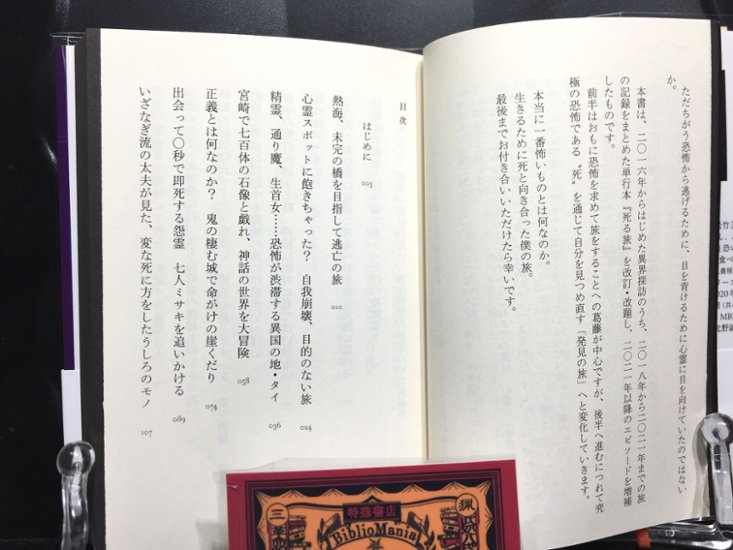 ただちがう恐怖から逃げるために、目を背けるために心霊に目を向けていたのではない
か。
本書は、二〇一六年からはじめた異界探訪のうち、二〇一八年から二〇二一年までの旅
の記録をまとめた単行本『死る旅』を改訂・改題し、二〇二一年以降のエピソードを増補
したものです。
前半はおもに恐怖を求めて旅をすることへの葛藤が中心ですが、後半へ進むにつれて究
極の恐怖である〝死〟を通じて自分を見つめ直す「発見の旅」へと変化していきます。
本当に一番怖いものとは何なのか。
生きるために死と向き合った僕の旅。
最後までお付き合いいただけたら幸いです。
目次
はじめに 003
熱海、未完の橋を目指して逃亡の旅 010
心霊スポットに飽きちゃった? 自我崩壊、目的のない旅 024
精霊、通り魔、生首女……恐怖が渋滞する異国の地・タイ 036
宮崎で七百体の石像と戯れ、神話の世界を大冒険 058
正義とは何なのか? 鬼の棲む城で命がけの崖くだり 074
出会って〇秒で即死する怨霊 七人ミサキを追いかける 089
いざなぎ流の太夫が見た、変な死に方をしたうしろのモノ 107
特殊書店
BiblioMania